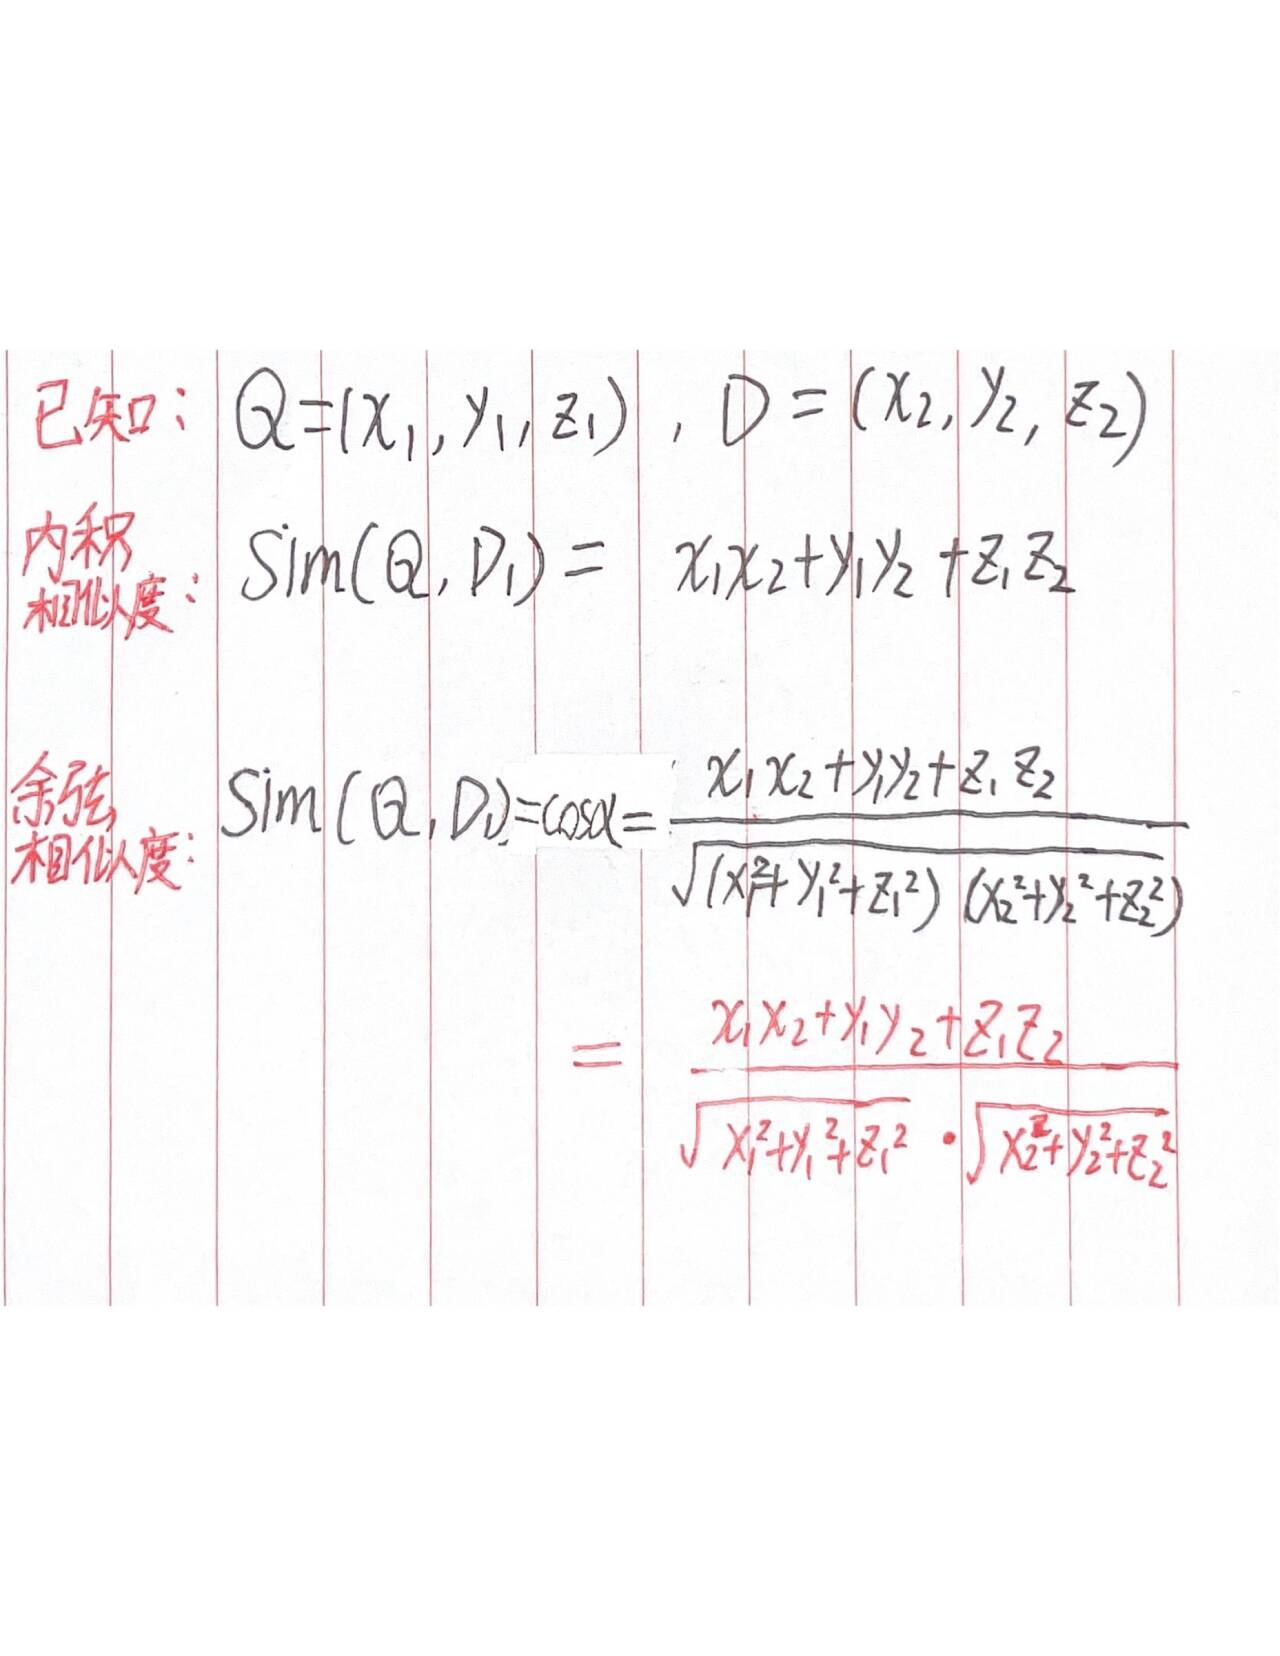 已知: Q=(x₁, y₁, z₁) , D = (x₂, y₂, z₂)
内积相似度: Sim(Q, D₁) = x₁x₂+y₁y₂+z₁z₂
余弦相似度: Sim(Q, D₁)=cosα= (x₁x₂+y₁y₂+z₁z₂) / √(x₁²+y₁²+z₁²) (x₂²+y₂²+z₂²)
= (x₁x₂+y₁y₂+z₁z₂) / √x₁²+y₁²+z₁² · √x₂²+y₂²+z₂²